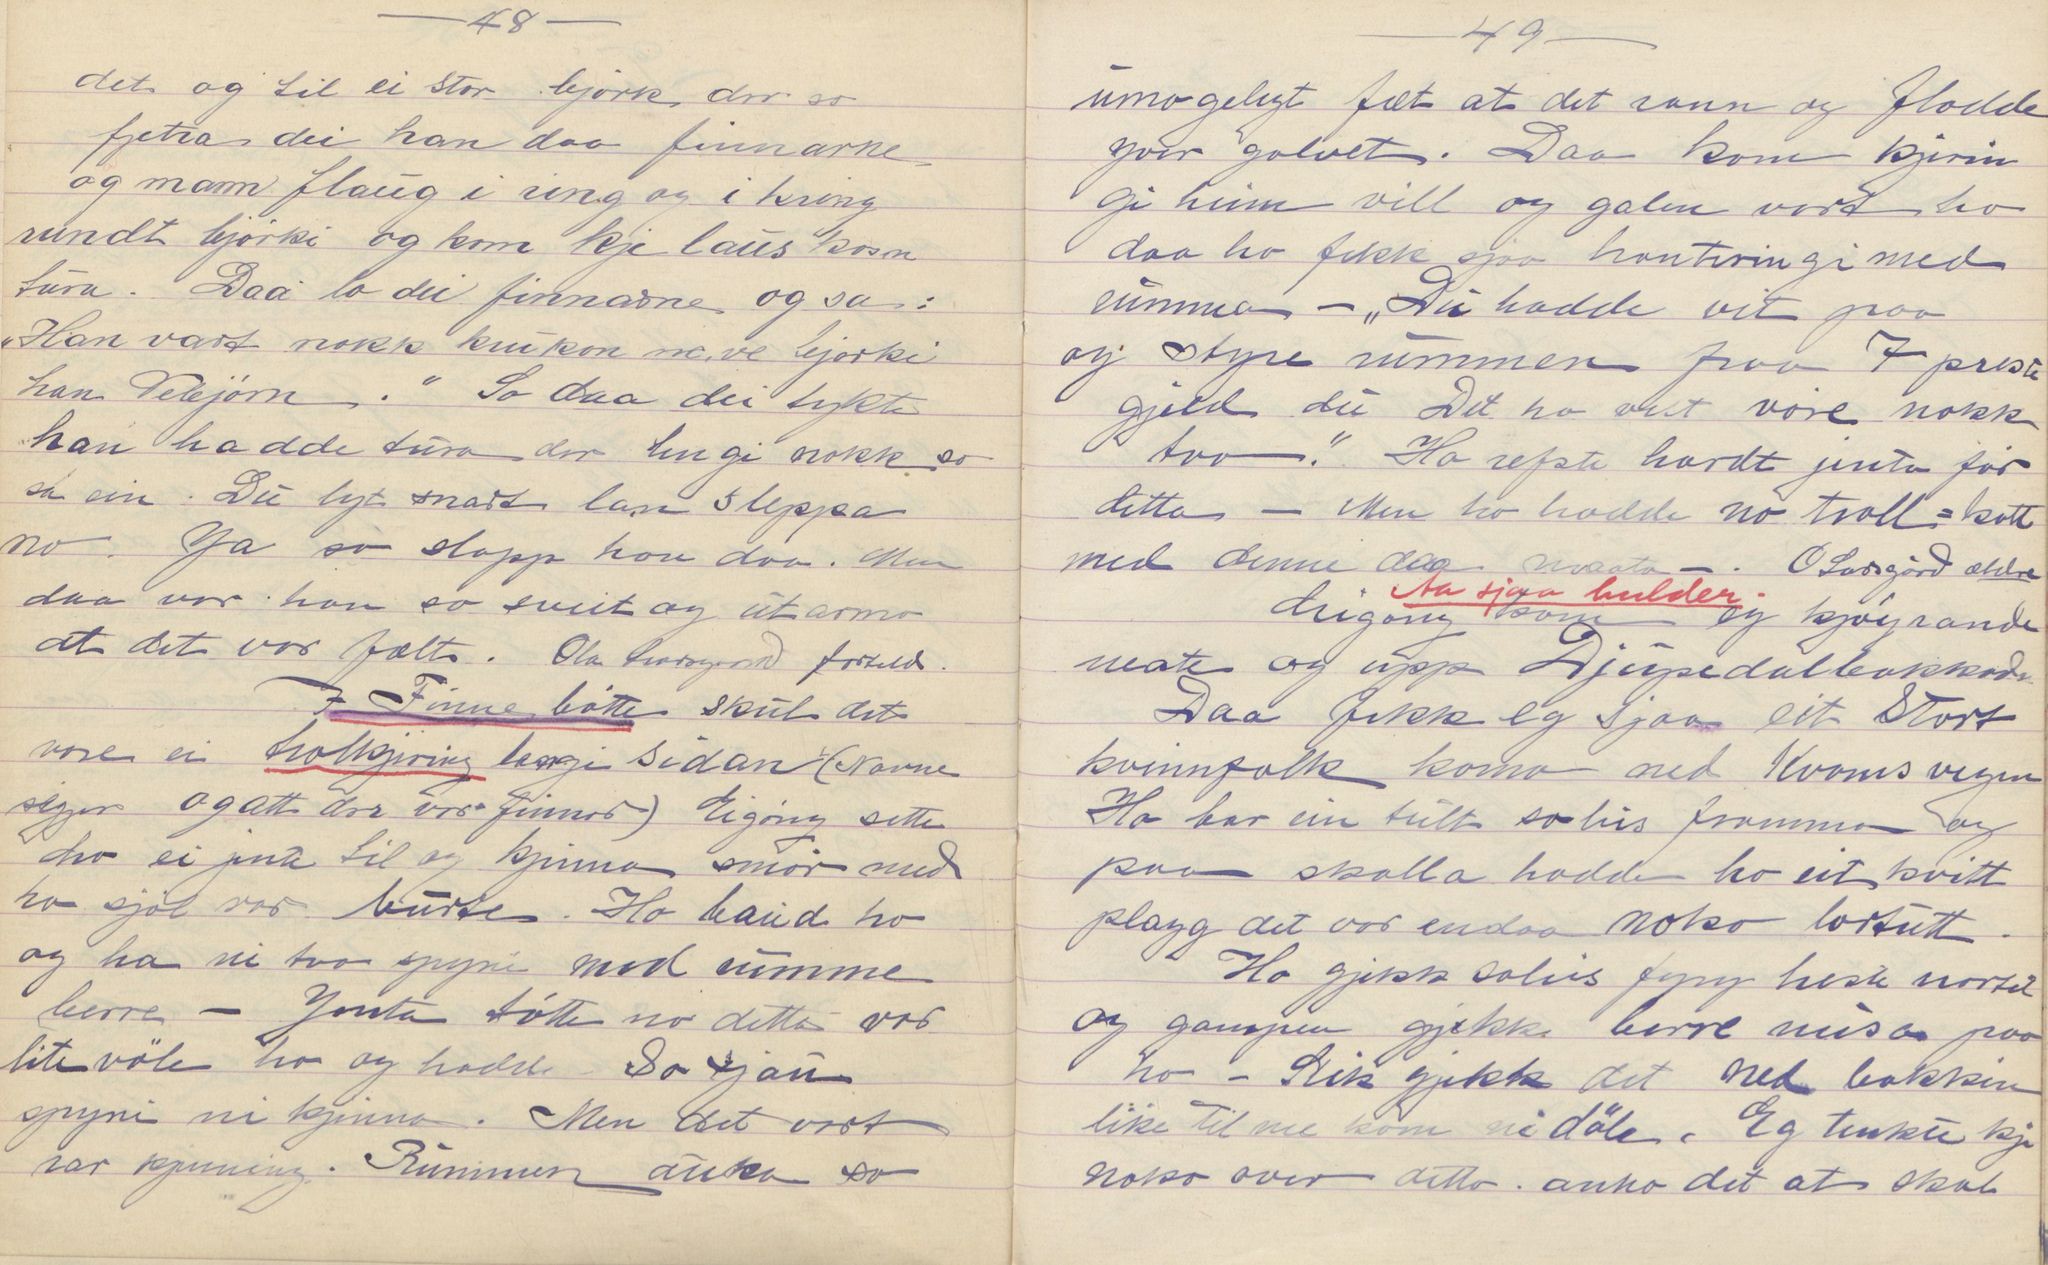 — 48 —
det og til ei stor björk der so
fjetra dei han daa finnarne
og mann flaug i ring og i kring
rundt björki og kom kje laus kosn
tura. Daa lo dei finnarne og sa:
"Han vart nokk knikon ve björki
han Vebjörn." So daa dei tykte
han hadde tura der lengi nokk so
sa ein. Du lyt snart lan sleppa
no. Ja so slapp han daa. Men
daa var han so sveit og utarma
at det var fælt. Ola forteld.
7 Finne bötte skul det
vore ei trollkjering langi sidan (Navne
sigjer og att dæ var finnar) Eigong sette
ho ei jente til og kjinna smör med
ho sjöl var burte. Ho baud ho
og ha ni two spyni med rumme
berre — Jenta tötte no detta var
lite völe ho og hadde So sjau
spyni ni kjinna. Men det vart
rar kjinning. Rummen auka so
— 49 —
umogelegt fælt at det rann og flodde
yver golvet. Daa kom kjerin
gi heim vill og galen vart ho
daa ho fekk sjaa hanteringi med
rumma — "Du hadde vit paa
og styre rummen fraa 7 preste
gjeld du Det ha vest vore nokk
two." Ho refste hardt jenta för
detta — Men ho hadde no troll-katt
med denne daa —. O Larsgård ældre
Aa sjaa hulder.
Eigong som eg kjöyrande
neate og upp Djupedalbakkad.
Daa fekk eg sjaa eit stort
kvinnfolk koma ned Kvamsvegen
Ho bar ein tult solris framma og
paa skalla hadde ho eit kvitt
plagg det var endaa noko lortutt.
Ho gjekk solris fyry heste nortil
og gampen gjekk berre nusa paa
ho — Slik gjekk det ned bakkin
like til me kom ni döle. Eg tenkte kje
noko over detta anna det at skal